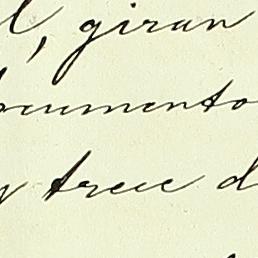 l, giran
ocumento
y trece d